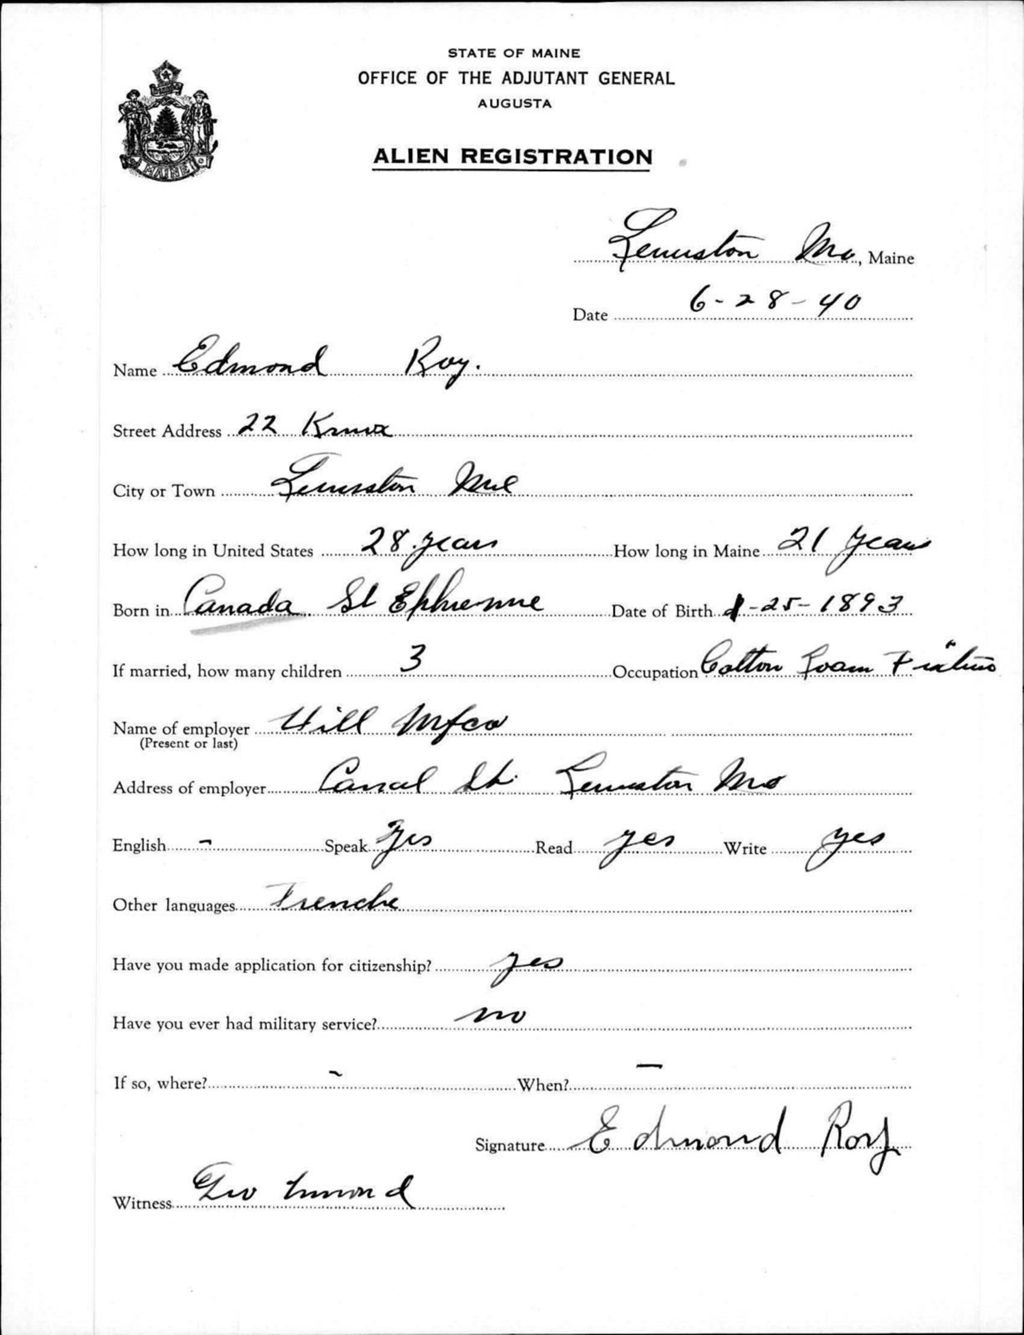 STATE OF MAINE
OFFICE OF THE ADJUTANT GENERAL
AUGUSTA
ALIEN REGISTRATION
MAINE
Lewiston Me, Maine
Date 6-28-40
Name Edmond Roy.
Street Address 22 Knox
City or Town Lewiston Me
How long in United States 28 years How long in Maine 21 years
Born in Canada St Ephrienne Date of Birth 1-25-1893
If married, how many children 3 Occupation Cotton Loam
Name of employer Hill Mfco
(Present or last)
Address of employer Canal St. Lewiston Me
English - Speak Yes Read yes Write yes
Other languages Frenche
Have you made application for citizenship? yes
Have you ever had military service? no
If so, where? - When? -
Signature Edmond Roy
Witness Geo